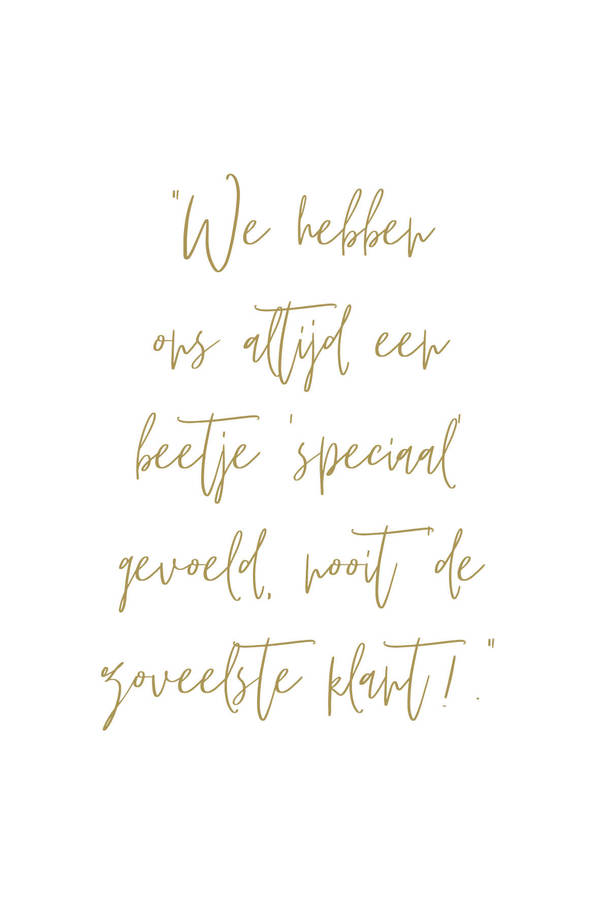 "We hebben
ons altijd een
beetje 'speciaal'
gevoeld, nooit 'de
zoveelste klant'!."